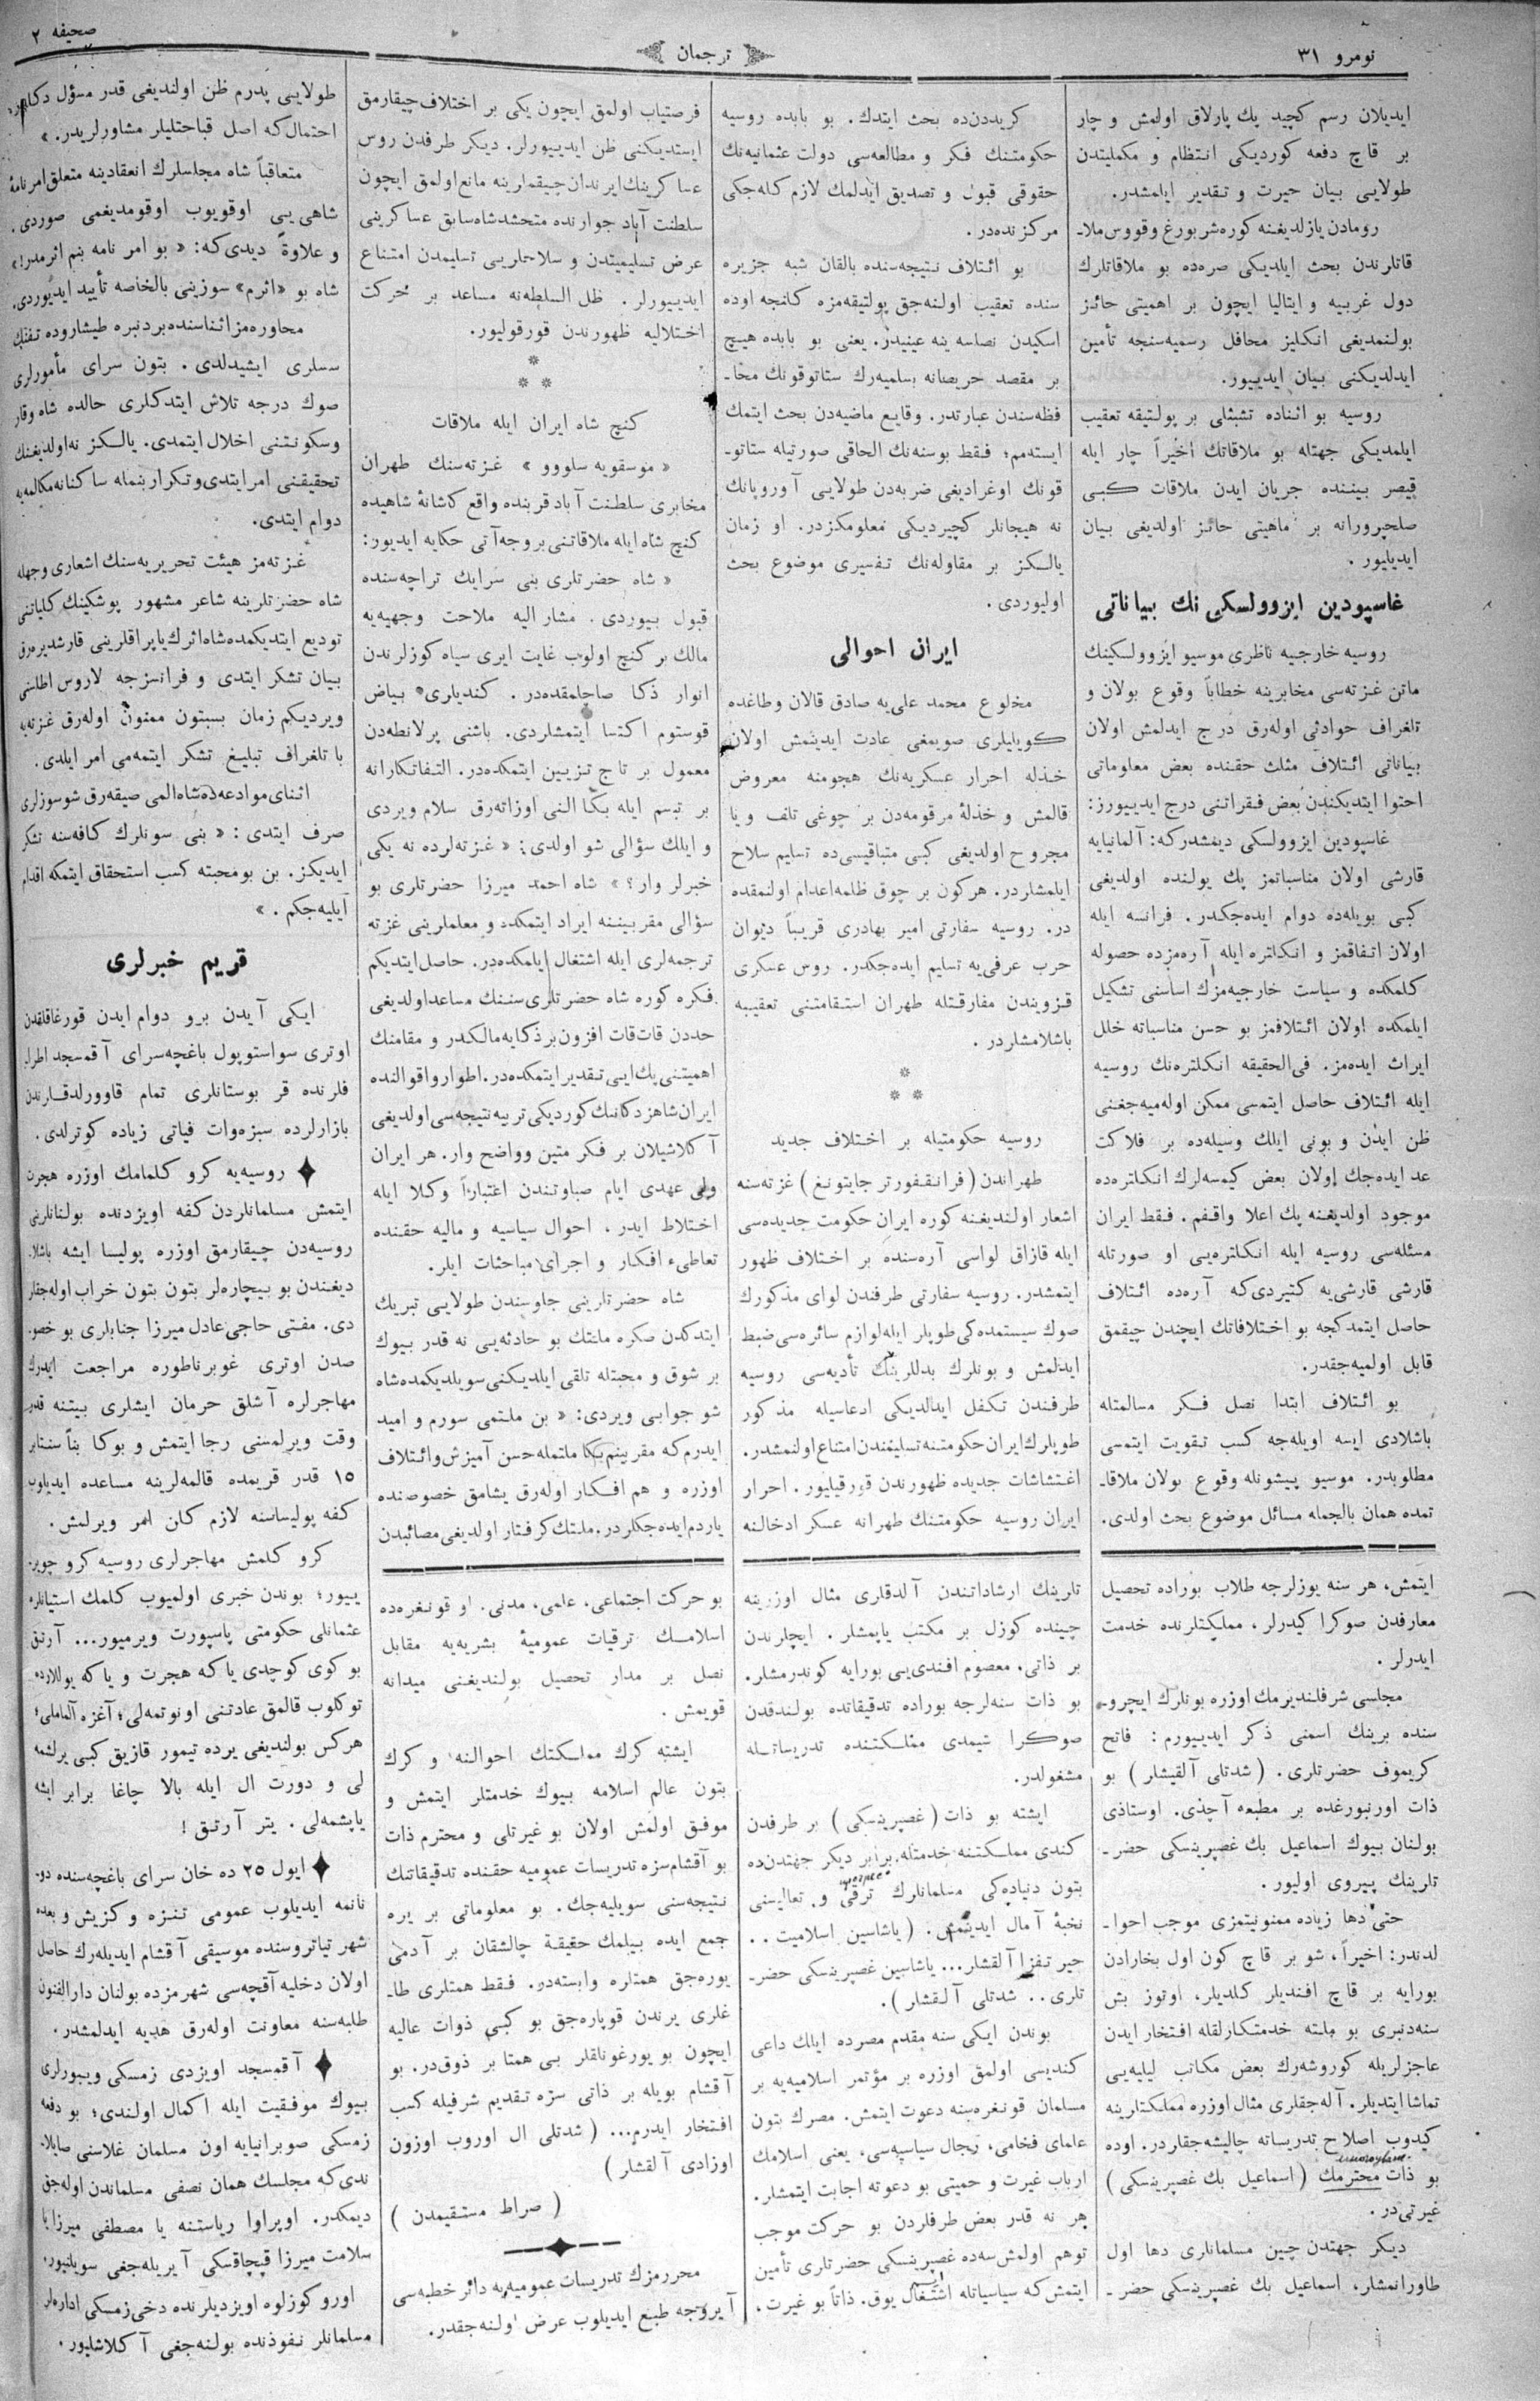 نومرو ٣١
ترجمان
صحیفه ٢
ایدیلان رسم كچید پك پارلاق اولمش و چار
بر قاچ دفعه كوردیكی انتظام و مكملیتدن
طولایی بیان حیرت و تقدیر ایلمشدر.
رومادن یازلدیغنه كوره شربورغ وقووس ملا-
قاتلرندن بحث ایلدیكی صره‌ده بو ملاقاتلرك
دول غربیه و ایتالیا ایچون بر اهمیتی حائز
بولنمدیغی انكلیز محافل رسمیه‌سنجه تأمین
ایدلدیكنی بیان ایدییور.
روسیه بو اثناده تشبثلی بر پولتیقه تعقیب
ایلمدیكی جهتله بو ملاقاتك اخیراً چار ایله
قیصر بیننده جریان ایدن ملاقات كبی
صلحپرورانه بر ماهیتی حائز اولدیغی بیان
ایدیلیور.
غاسپودین ایزوولسكی نك بیاناتی
روسیه خارجیه ناظری موسیو ایزوولسكینك
ماتن غزته‌سی مخابرینه خطاباً وقوع بولان و
تلغراف حوادثی اوله‌رق درج ایدلمش اولان
بیاناتی ائتلاف مثلث حقنده بعض معلوماتی
احتوا ایتدیكندن بعض فقراتنی درج ایدییورز:
غاسپودین ایزوولسكی دیمشدركه: آلمانیایه
قارشی اولان مناسباتمز پك یولنده اولدیغی
كبی بویله‌ده دوام ایده‌جكدر. فرانسه ایله
اولان اتفاقمز و انكلتره ایله آره‌مزده حصوله
كلمكده و سیاست خارجیه‌مزك اساسنی تشكیل
ایلمكده اولان ائتلافمز بو حسن مناسباته خلل
ایراث ایده‌مز. فی‌الحقیقه انكلتره‌نك روسیه
ایله ائتلاف حاصل ایتمسی ممكن اوله‌میه‌جغنی
ظن ایدن و بونی ایلك وسیله‌ده بر فلاكت
عد ایده‌جك اولان بعض كیمسه‌لرك انكلتره‌ده
موجود اولدیغنه پك اعلا واقفم. فقط ایران
مسئله‌سی روسیه ایله انكلتره‌یی او صورتله
قارشی قارشی‌یه كتیردی‌كه آره‌ده ائتلاف
حاصل ایتمدكجه بو اختلافاتك ایچندن چیقمق
قابل اولمیه‌جقدر.
بو ائتلاف ابتدا نصل فكر مسالمتله
باشلادی ایسه اویله‌جه كسب تقویت ایتمسی
مطلوبدر. موسیو پیشونله وقوع بولان ملاقا-
تمده همان بالجمله مسائل موضوع بحث اولدی.
كریددن‌ده بحث ایتدك. بو بابده روسیه
حكومتنك فكر و مطالعه‌سی دولت عثمانیه‌نك
حقوقی قبول و تصدیق ایدلمك لازم كله‌جكی
مركزنده‌در.
بو ائتلاف نتیجه‌سنده بالقان شبه جزیره
سنده تعقیب اولنه‌جق پولتیقه‌مزه كلنجه اوده
اسكیدن نصلسه ینه عینیدر. یعنی بو بابده هیچ
بر مقصد حریصانه بسلمیه‌رك ستاتوقونك محا-
فظه‌سندن عبارتدر. وقایع ماضیه‌دن بحث ایتمك
ایسته‌مم؛ فقط بوسنه‌نك الحاقی صورتیله ستاتو-
قونك اوغرادیغی ضربه‌دن طولایی آوروپانك
نه هیجانلر كچیردیكی معلومكزدر. او زمان
یالكز بر مقاوله‌نك تفسیری موضوع بحث
اولیوردی.
ایران احوالی
مخلوع محمد علی‌یه صادق قالان وطاغده
كویلیلری صویمغی عادت ایدینمش اولان
خذله احرار عسكریه‌نك هجومنه معروض
قالمش و خذلهٔ مرقومه‌دن بر چوغی تلف و یا
مجروح اولدیغی كبی متباقیسی‌ده تسلیم سلاح
ایلمشلردر. هركون بر چوق ظلمه اعدام اولنمقده
در. روسیه سفارتی امیر بهادری قریباً دیوان
حرب عرفی‌یه تسلیم ایده‌جكدر. روس عسكری
قزویندن مفارقتله طهران استقامتنی تعقیبه
باشلامشلردر.
* * *
روسیه حكومتیله بر اختلاف جدید
طهراندن (فرانقفورتر جایتونغ) غزته‌سنه
اشعار اولندیغنه كوره ایران حكومت جدیده‌سی
ایله قازاق لواسی آره‌سنده بر اختلاف ظهور
ایتمشدر. روسیه سفارتی طرفندن لوای مذكورك
صوك سیستمده‌كی طوپلر ایله لوازم سائره‌سی ضبط
ایدلمش و بونلرك بدللرینك تأدیه‌سی روسیه
طرفندن تكفل ایدالدیكی ادعاسیله مذكور
طوپلرك ایران حكومتنه تسلیمندن امتناع اولنمشدر.
اغتشاشات جدیده ظهورندن قورقیلیور. احرار
ایران روسیه حكومتنك طهرانه عسكر ادخالنه
فرصتیاب اولمق ایچون یكی بر اختلاف چیقارمق
ایستدیكنی ظن ایدییورلر. دیكر طرفدن روس
عساكرینك ایرندان چیقمارینه مانع اولمق ایچون
سلطنت آباد جوارنده متحشد شاه سابق عساكرینی
عرض تسلیمیتدن و سلاحلریی تسلیمدن امتناع
ایدییورلر. ظل السلطه‌نه مساعد بر حركت
اختلالیه ظهورندن قورقولیور.
* * *
كنج شاه ایران ایله ملاقات
« موسقویه سلووو » غزته‌سنك طهران
مخابری سلطنت آباد قربنده واقع كاشانهٔ شاهیده
كنج شاه ایله ملاقاتنی بر وجه آتی حكایه ایدیور:
« شاه حضرتلری بنی سرایك تراچه‌سنده
قبول بیوردی. مشار الیه ملاحت وجهیه‌یه
مالك بر كنج اولوب غایت ایری سیاه كوزلرندن
انوار ذكا صاچلمقده‌در. كندیلری بیاض
قوستوم اكتسا ایتمشلردی. باشنی پرلانطه‌دن
معمول بر تاج تزیین ایتمكده‌در. التفاتكارانه
بر تبسم ایله بكا النی اوزاته‌رق سلام ویردی
و ایلك سؤالی شو اولدی: « غزته‌لرده نه یكی
خبرلر وار؟ » شاه احمد میرزا حضرتلری بو
سؤالی مقربیننه ایراد ایتمكده و معلملرینی غزته
ترجمه‌لری ایله اشتغال ایلمكده‌در. حاصل ایتدیكم
فكره كوره شاه حضرتلری سننك مساعد اولدیغی
حددن قات قات افزون بر ذكایه مالكدر و مقامنك
اهمیتنی پك ایی تقدیر ایتمكده‌در. اطوار و اقوالنده
ایران شاهزدكاننك كوردیكی تربیه نتیجه‌سی اولدیغی
آكلاشیلان بر فكر متین وواضح وار. هر ایران
ولی عهدی ایام صباوتندن اعتباراً وكلا ایله
اختلاط ایدر، احوال سیاسیه و مالیه حقنده
تعاطیء افكار و اجرای مباحثات ایلر.
شاه حضرتلرینی جلوسندن طولایی تبریك
ایتدكدن صكره ملتك بو حادثه‌یی نه قدر بیوك
بر شوق و محبتله تلقی ایلدیكنی سویلدیكمده شاه
شو جوابی ویردی: « بن ملتمی سورم و امید
ایدرم‌كه مقربینم بكا ملتمله حسن آمیزش وائتلاف
اوزره و هم افكار اوله‌رق یشامق خصوصنده
یاردم ایده‌جكلردر. ملتك كرفتار اولدیغی مصائبدن
طولایی پدرم ظن اولندیغی قدر مسؤل دكلدر.
احتمال‌كه اصل قباحتلیلر مشاورلریدر. »
متعاقباً شاه مجلسلرك انعقادینه متعلق امرنامهٔ
شاهی‌یی اوقویوب اوقومدیغمی صوردی.
و علاوةً دیدی‌كه: « بو امر نامه بنم اثرمدر! »
شاه بو «اثرم» سوزینی بالخاصه تأیید ایدیوردی.
محاوره‌مز اثناسنده بردنبره طیشاروده تفنك
سسلری ایشیدلدی. بتون سرای مأمورلری
صوك درجه تلاش ایتدكلری حالده شاه وقار
وسكونتنی اخلال ایتمدی. یالكز نه اولدیغنك
تحقیقنی امر ایتدی و تكرار بنمله ساكنانه مكالمه‌یه
دوام ایتدی.
غزته‌مز هیئت تحریریه‌سنك اشعاری وجهله
شاه حضرتلرینه شاعر مشهور پوشكینك كلیاتنی
تودیع ایتدیكمده شاه اثرك یاپراقلرینی قارشدیره‌رق
بیان تشكر ایتدی و فرانسزجه لاروس اطلسنی
ویردیكم زمان بسبتون ممنون اوله‌رق غزته‌یه
با تلغراف تبلیغ تشكر ایتمه‌می امر ایلدی.
اثنای موادعه‌ده شاه المی صیقه‌رق شو سوزلری
صرف ایتدی: « بنی سونلرك كافه‌سنه تشكر
ایدیكز. بن بو محبته كسب استحقاق ایتمكه اقدام
آیلیه‌جكم. »
قریم خبرلری
ایكی آیدن برو دوام ایدن قورغاقلقدن
اوتری سواستوپول باغچه‌سرای آقمسجد اطرا-
فلرنده قر بوستانلری تمام قاوورلدقلرندن
بازارلرده سبزه‌وات فیاتی زیاده كوترلدی.
روسیه‌یه كرو كلمامك اوزره هجرت
ایتمش مسلمانلردن كفه اویزدنده بولنانلرینی
روسیه‌دن چیقارمق اوزره پولیسا ایشه باشلا-
دیغندن بو بیچاره‌لر بتون بتون خراب اوله‌جقلر
دی. مفتی حاجی عادل میرزا جنابلری بو خصو-
صدن اوتری غوبرناطوره مراجعت ایدرك
مهاجرلره آشلق حرمان ایشلری بیتنه قدر
وقت ویرلمسنی رجا ایتمش و بوكا بناً سنتابر
١٥ قدر قریمده قالمه‌لرینه مساعده ایدیلوب
كفه پولیساسنه لازم كلن امر ویرلمش.
كرو كلمش مهاجرلری روسیه كرو چویر-
ییور؛ بوندن خبری اولمیوب كلمك استیانلره
عثمانلی حكومتی پاسپورت ویرمیور... آرتق
بو كوی كوچدی یاكه هجرت و یاكه یوللارده
توكلوب قالمق عادتنی اونوتمه‌لی؛ آغزه آلماملی؛
هركس بولندیغی یرده تیمور قازیق كبی یرلشمه
لی و دورت ال ایله بالا چاغا برابر ایشه
یاپشمه‌لی. یتر آرتق!
ایول ٢٥ ده خان سرای باغچه‌سنده دو-
نانمه ایدیلوب عمومی تنزه و كزیش و بعده
شهر تیاتروسنده موسیقی آقشام ایدیله‌رك حاصل
اولان دخلیه آقچه‌سی شهرمزده بولنان دارالفنون
طلبه‌سنه معاونت اوله‌رق هدیه ایدلمشدر.
آقمسجد اویزدی زمسكی ویبورلری
بیوك موفقیت ایله اكمال اولندی؛ بو دفعه
زمسكی صوبرانیایه اون مسلمان غلاسنی صایلا-
ندی‌كه مجلسك همان نصفی مسلماندن اوله‌جق
دیمكدر. اوپراوا ریاستنه یا مصطفی میرزا یا
سلامت میرزا قپچاقسكی آیریله‌جغی سویلنیور.
اورو كوزلوه اویزدیلرنده دخی زمسكی اداره‌لر
مسلمانلر نفوذنده بولنه‌جغی آكلاشلیور.
ایتمش، هر سنه یوزلرجه طلاب بوراده تحصیل
معارفدن صوكرا كیدرلر، مملكتلرنده خدمت
ایدرلر.
مجلسی شرفلندیرمك اوزره بونلرك ایچرو-
سنده برینك اسمنی ذكر ایدییورم: فاتح
كریموف حضرتلری. (شدتلی آلقیشلر) بو
ذات اورنبورغده بر مطبعه آچدی. اوستاذی
بولنان بیوك اسماعیل بك غصپرینسكی حضر-
تلرینك پیروی اولیور.
حتی دها زیاده ممنونیتمزی موجب احوا-
لدندر: اخیراً، شو بر قاچ كون اول بخارادن
بورایه بر قاچ افندیلر كلدیلر، اوتوز بش
سنه‌دنبری بو ملته خدمتكارلقله افتخار ایدن
عاجزلریله كوروشه‌رك بعض مكاتب لیلیه‌یی
تماشا ایتدیلر. آله‌جقلری مثال اوزره مملكتلرینه
كیدوب اصلاح تدریساته چالیشه‌جقلردر. اوده
بو ذات محترمك (اسماعیل بك غصپرینسكی)
غیرتی‌در.
دیكر جهتدن چین مسلمانلری دها اول
طاورانمشلر، اسماعیل بك غصپرینسكی حضر-
تلرینك ارشاداتندن آلدقلری مثال اوزرینه
چینده كوزل بر مكتب یاپمشلر. ایچلرندن
بر ذاتی، معصوم افندی‌یی بورایه كوندرمشلر.
بو ذات سنه‌لرجه بوراده تدقیقاتده بولندقدن
صوكرا شیمدی مملكتنده تدریساتله
مشغولدر.
ایشته بو ذات (غصپرینسكی) بر طرفدن
كندی مملكتنه خدمتله برابر دیكر جهتدن‌ده
بتون دنیاده‌كی مسلمانلرك ترقی و تعالیسنی
نخبهٔ آمال ایدینمش. (یاشاسین اسلامیت..
جیر تفزا آلقشلر... یاشاسین غصپرینسكی حضر-
تلری.. شدتلی آلقشلر).
بوندن ایكی سنه مقدم مصرده ایلك داعی
كندیسی اولمق اوزره بر مؤتمر اسلامیه‌یه بر
مسلمان قونغره‌سنه دعوت ایتمش. مصرك بتون
علمای فخامی، رجال سیاسیه‌سی، یعنی اسلامك
ارباب غیرت و حمیتی بو دعوته اجابت ایتمشلر.
هر نه قدر بعض طرفلردن بو حركت موجب
توهم اولمش‌سه‌ده غصپرینسكی حضرتلری تأمین
ایتمش‌كه سیاسیاتله اشتغال یوق. ذاتاً بو غیرت،
بو حركت اجتماعی، علمی، مدنی. او قونغره‌ده
اسلامك ترقیات عمومیهٔ بشریه‌یه مقابل
نصل بر مدار تحصیل بولندیغنی میدانه
قویمش.
ایشته كرك مملكتك احوالنه و كرك
بتون عالم اسلامه بیوك خدمتلر ایتمش و
موفق اولمش اولان بو غیرتلی و محترم ذات
بو آقشام سزه تدریسات عمومیه حقنده تدقیقاتنك
نتیجه‌سنی سویلیه‌جك. بو معلوماتی بر یره
جمع ایده بیلمك حقیقة چالشقان بر آدمی
یوره‌جق همتلره وابسته‌در. فقط همتلری طا-
غلری یرندن قوپاره‌جق بو كبی ذوات عالیه
ایچون بو یورغونلقلر بی همتا بر ذوق‌در. بو
آقشام بویله بر ذاتی سزه تقدیم شرفیله كسب
افتخار ایدرم... (شدتلی ال اوروب اوزون
اوزادی آلقشلر)
( صراط مستقیمدن )
محررمزك تدریسات عمومیه‌یه دائر خطبه‌سی
آیروجه طبع ایدیلوب عرض اولنه‌جقدر.